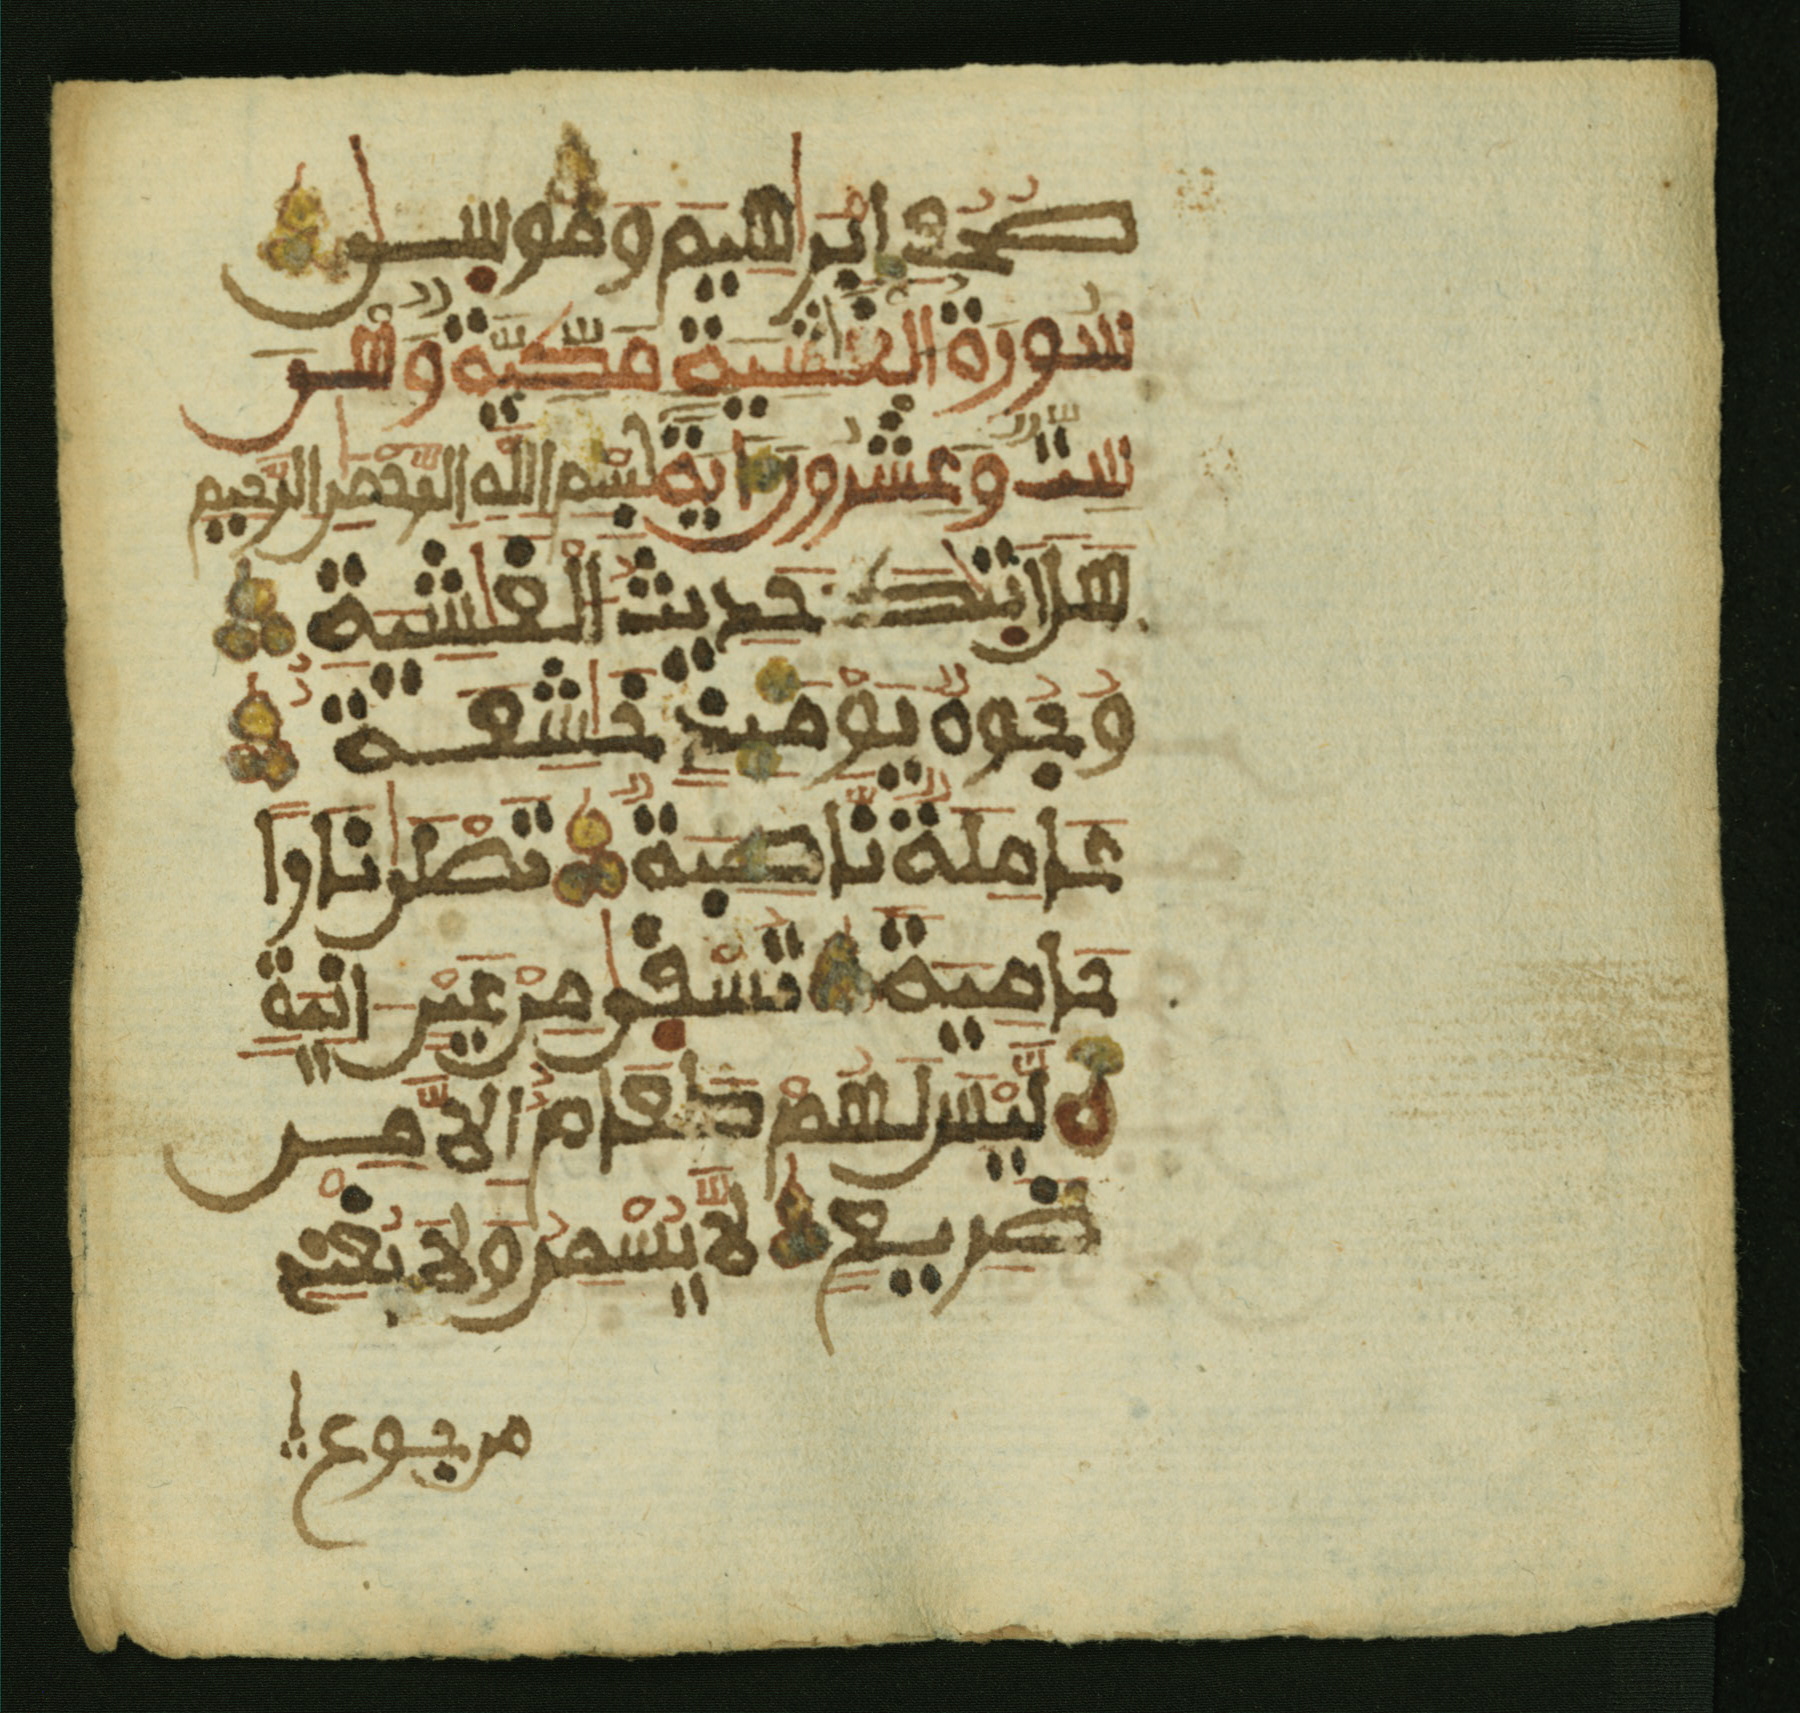 صحف ابرهيم وموسى
سورة الغشية مكية وهى
ست وعشرون اية بسم الله الرحمن الرحيم
هل اتيك حديث الغشية
وجوه يومئذ خشعة
عاملة ناصبة تصلى نارا
حامية تسقى من عين انية
ليس لهم طعام الا من
ضريع لا يسمن ولا يغنى
مرجوع